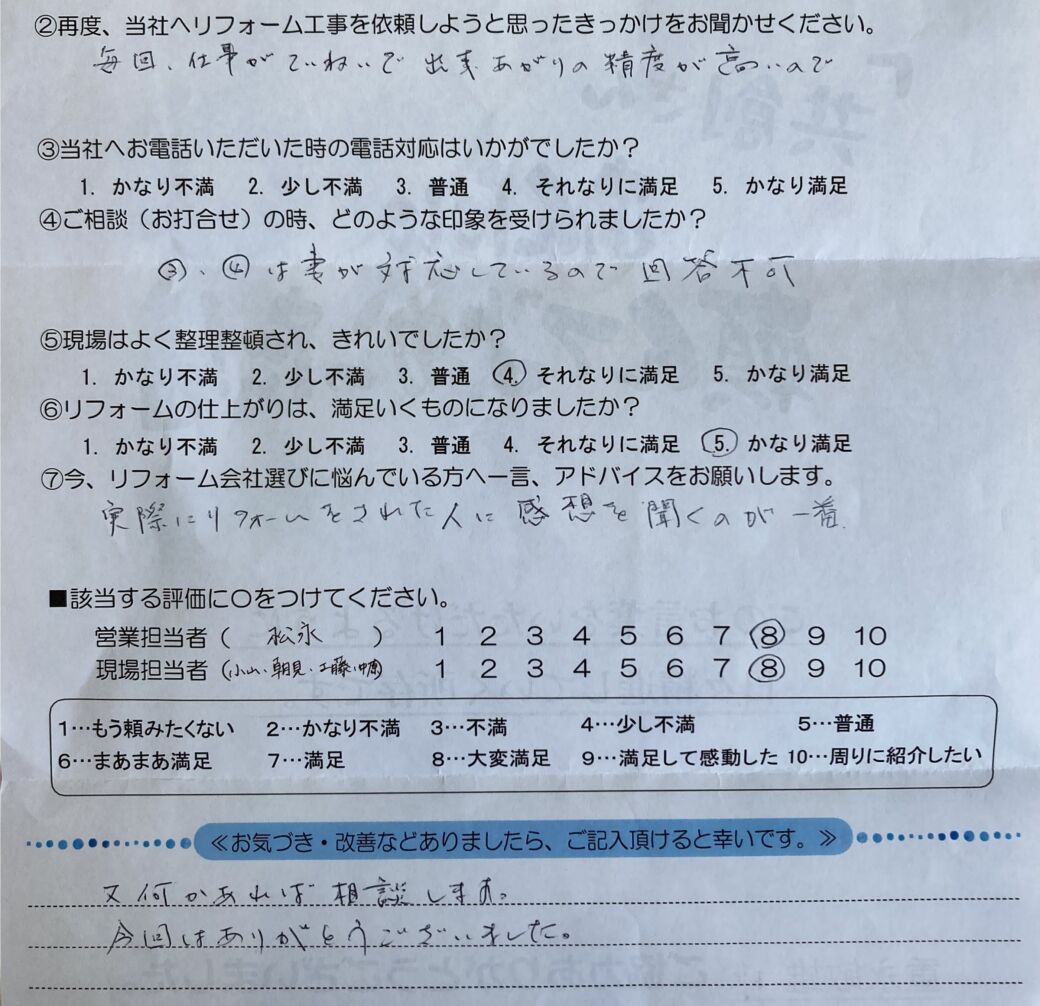 ②再度、当社へリフォーム工事を依頼しようと思ったきっかけをお聞かせください。
毎回、仕事がていねいで出来あがりの精度が高いので
③当社へお電話いただいた時の電話対応はいかがでしたか？
1. かなり不満 2. 少し不満 3. 普通 4. それなりに満足 5. かなり満足
④ご相談（お打合せ）の時、どのような印象を受けられましたか？
③、④は妻が対応しているので回答不可
⑤現場はよく整理整頓され、きれいでしたか？
1. かなり不満 2. 少し不満 3. 普通 4. それなりに満足 5. かなり満足
⑥リフォームの仕上がりは、満足いくものになりましたか？
1. かなり不満 2. 少し不満 3. 普通 4. それなりに満足 5. かなり満足
⑦今、リフォーム会社選びに悩んでいる方へ一言、アドバイスをお願いします。
実際にリフォームをされた人に感想を聞くのが一番
■該当する評価に〇をつけてください。
営業担当者（ 松永 ） 1 2 3 4 5 6 7 8 9 10
現場担当者（小山、朝見、工藤、中 ） 1 2 3 4 5 6 7 8 9 10
1…もう頼みたくない 2…かなり不満 3…不満 4…少し不満 5…普通
6…まあまあ満足 7…満足 8…大変満足 9…満足して感動した 10…周りに紹介したい
≪お気づき・改善などありましたら、ご記入頂けると幸いです。≫
又何かあれば相談します。
今回はありがとうございました。